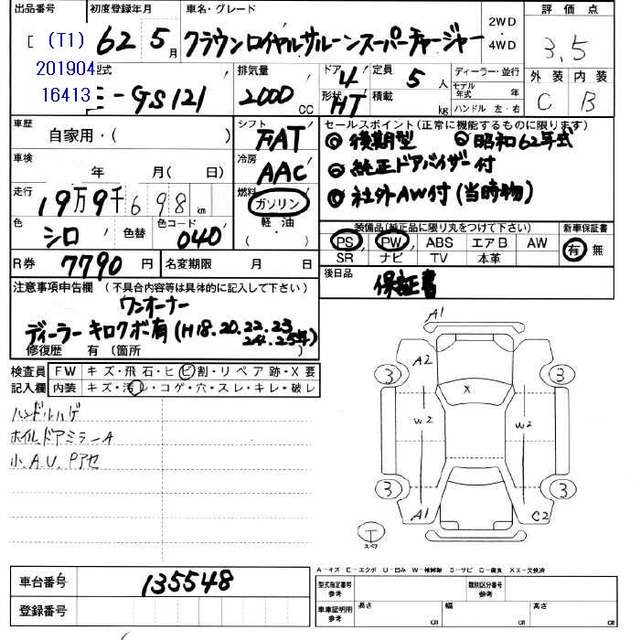 出品番号 初度登録年月 車名・グレード 2WD・4WD 評価点
(T1) 62年5月 クラウンロイヤルサルーンスーパーチャージャー 3.5
201904
16413
型式 排気量 ドア 定員 ディーラー・並行 外装 内装
GS121 2000cc 4 5人 モデル年式 年 C B
形状 HT 積載 kg ハンドル 左・右
車歴 自家用・( ) シフト FAT セールスポイント(正常に機能するものに限ります)
◎後期型 ◎昭和62年式
車検 年 月(日) 冷房 AAC ◎純正ドアバイザー付
走行 19万9千698km 燃料 ガソリン・軽油 ◎社外AW付(当時物)
色 シロ 色替 色コード 040 装備品(純正品に限り丸をつけて下さい) 新車保証書
PS PW ABS エアB AW 有・無
SR ナビ TV 本革
R券 7790円 名変期限 月 日 後日品 保証書
注意事項申告欄(不具合内容等は具体的に記入して下さい)
ワンオーナー
ディーラーキロクボ有(H18.20.22.23
24.25年)
修復歴 有〔箇所 〕
検査員記入欄 FW キズ・飛石・ヒビ割・リペア跡・X要
内装 キズ・汚レ・コゲ・穴・スレ・キレ・破レ
ハンドルハゲ
ホイルドアミラーA
小A.U.Pアセ
A1
A2
3 3
X
W2 W2
3 3
A1 C2
T
スペア
A-キズ E-エクボ U-凹み W-補修跡 S-サビ C-腐食 XX-交換済
車台番号 135548
登録番号
型式指定番号 参考 類別区分番号 参考
車車証明用 参考 長さ cm 幅 cm 高さ cm